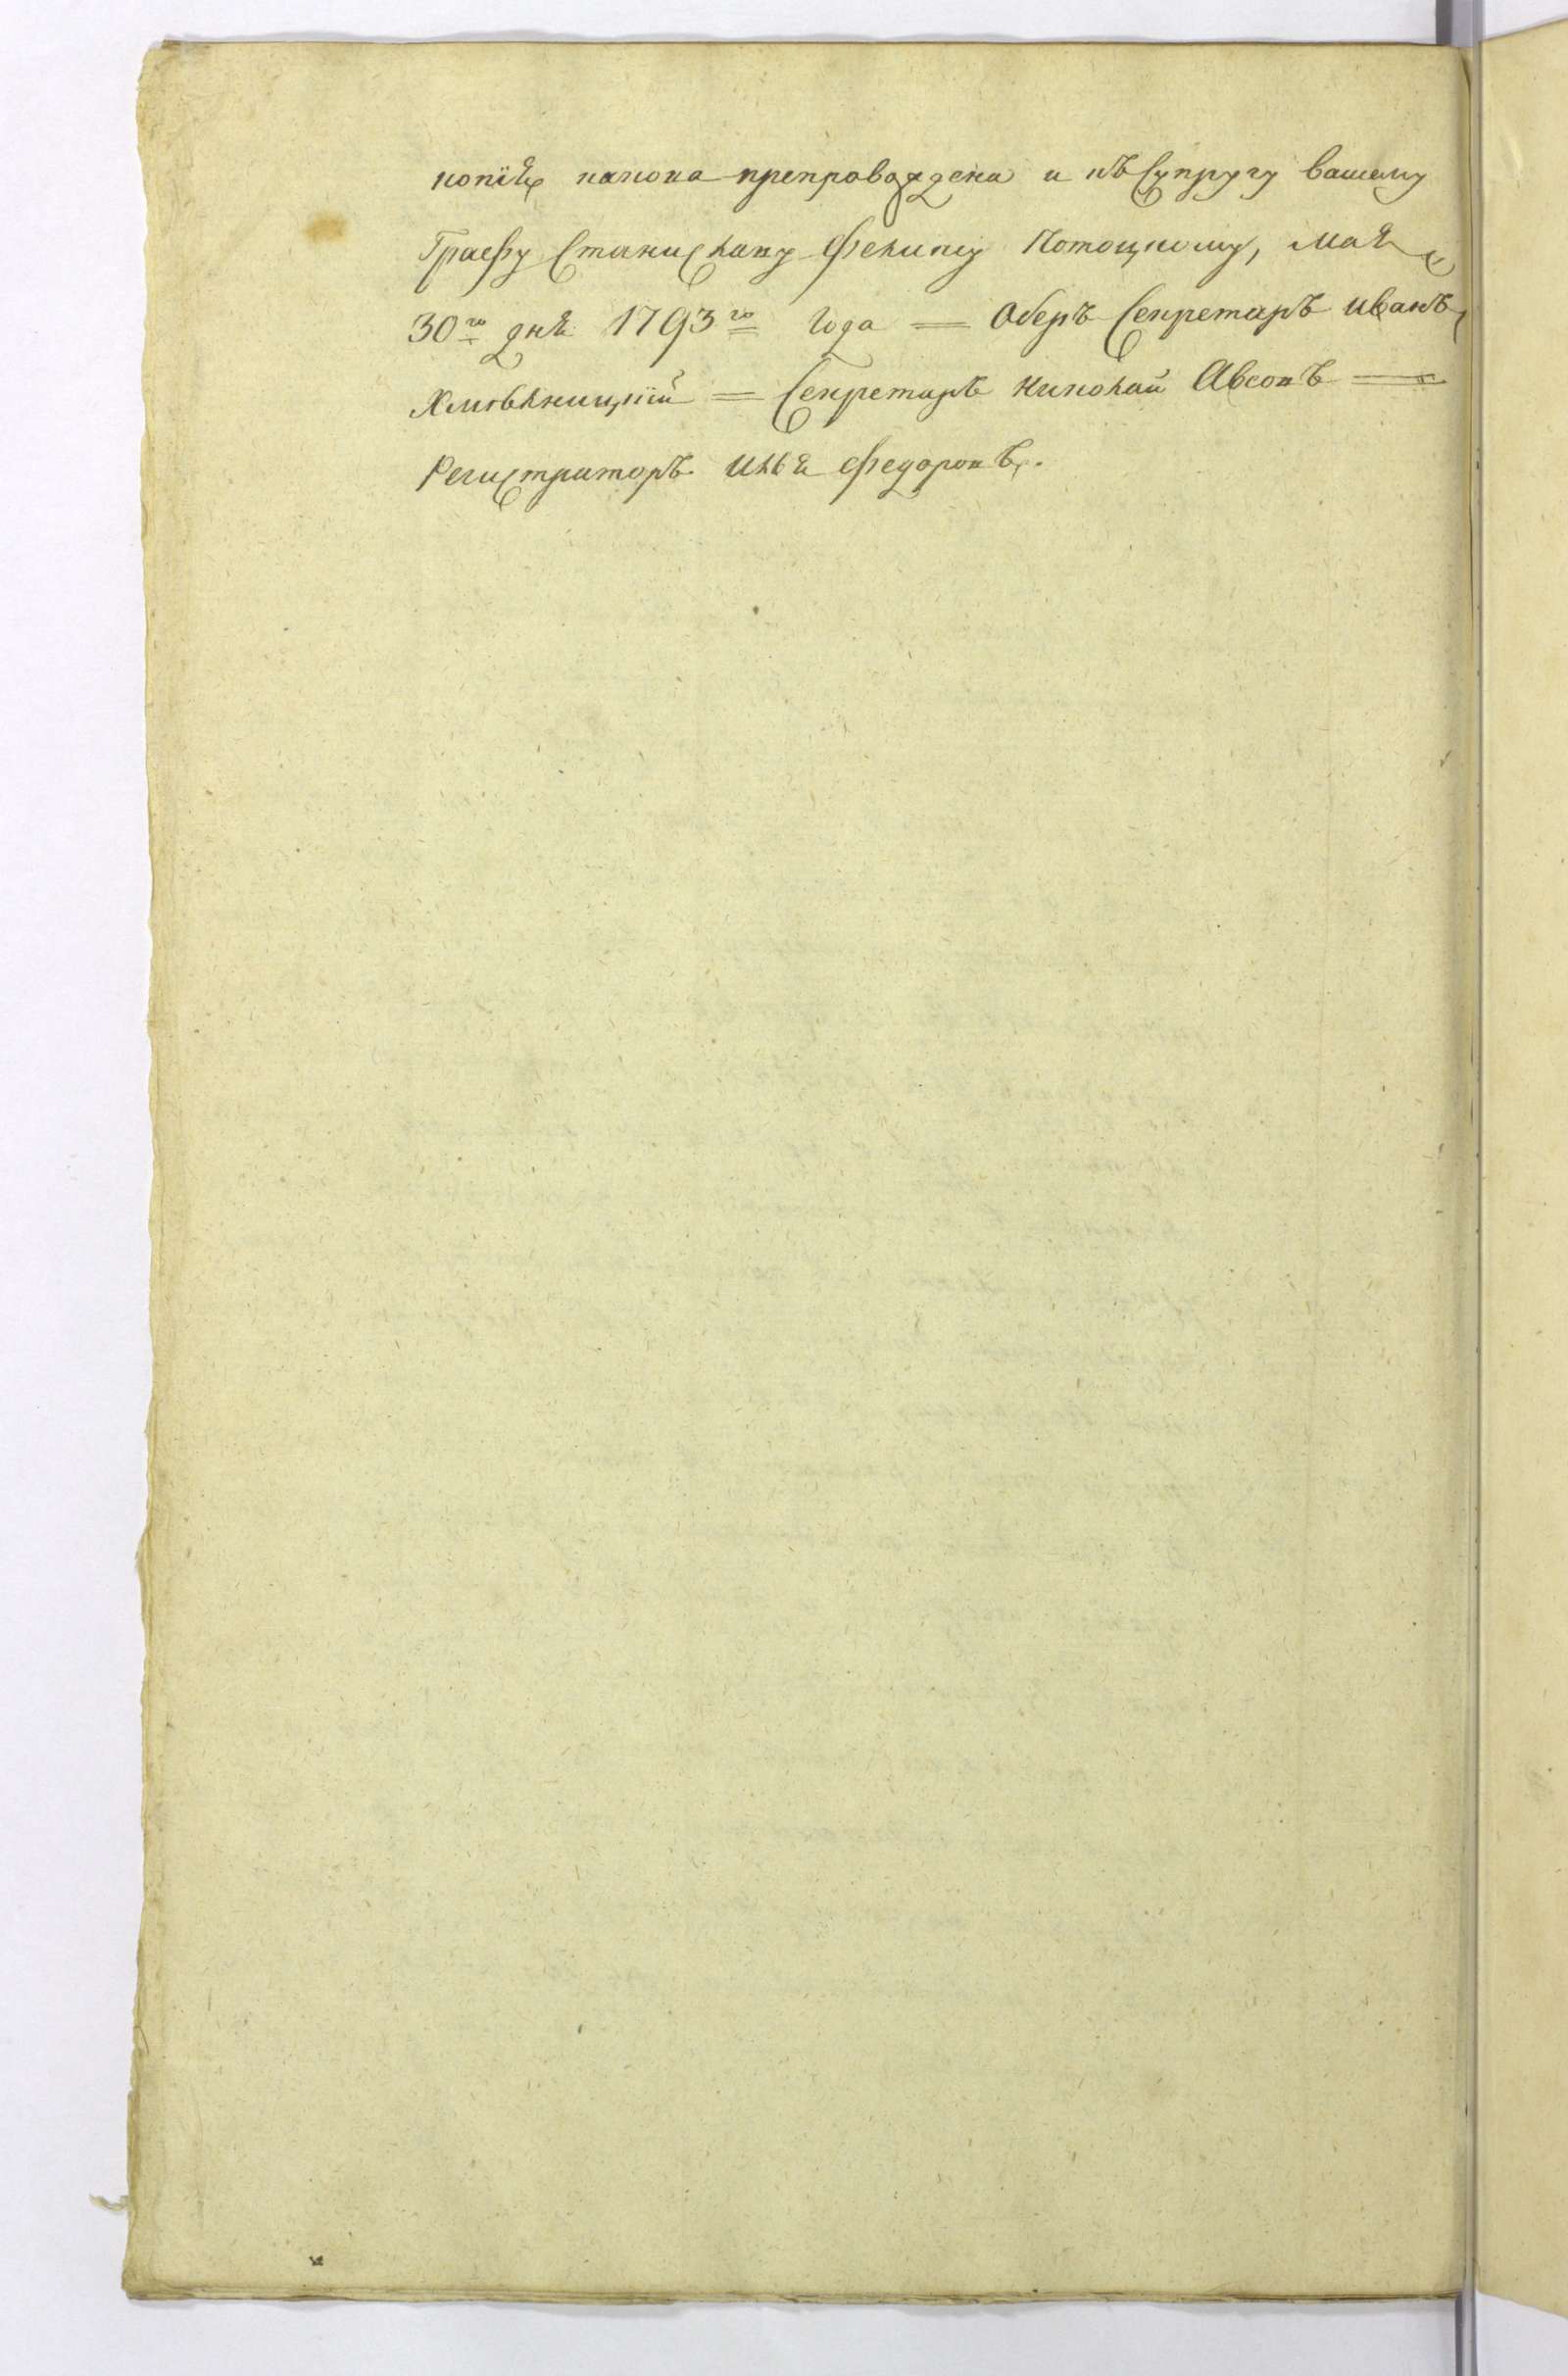 копїя какова препровождена и къ Супругу вашему
Графу Станиславу Феликсу Потоцкому, Мая
30го дня 1793го Года = Оберъ Секретарь Иванъ
Хмѣльницкїй = Секретарь Николай Авсовъ =
Регистраторъ Илья Федоровъ.